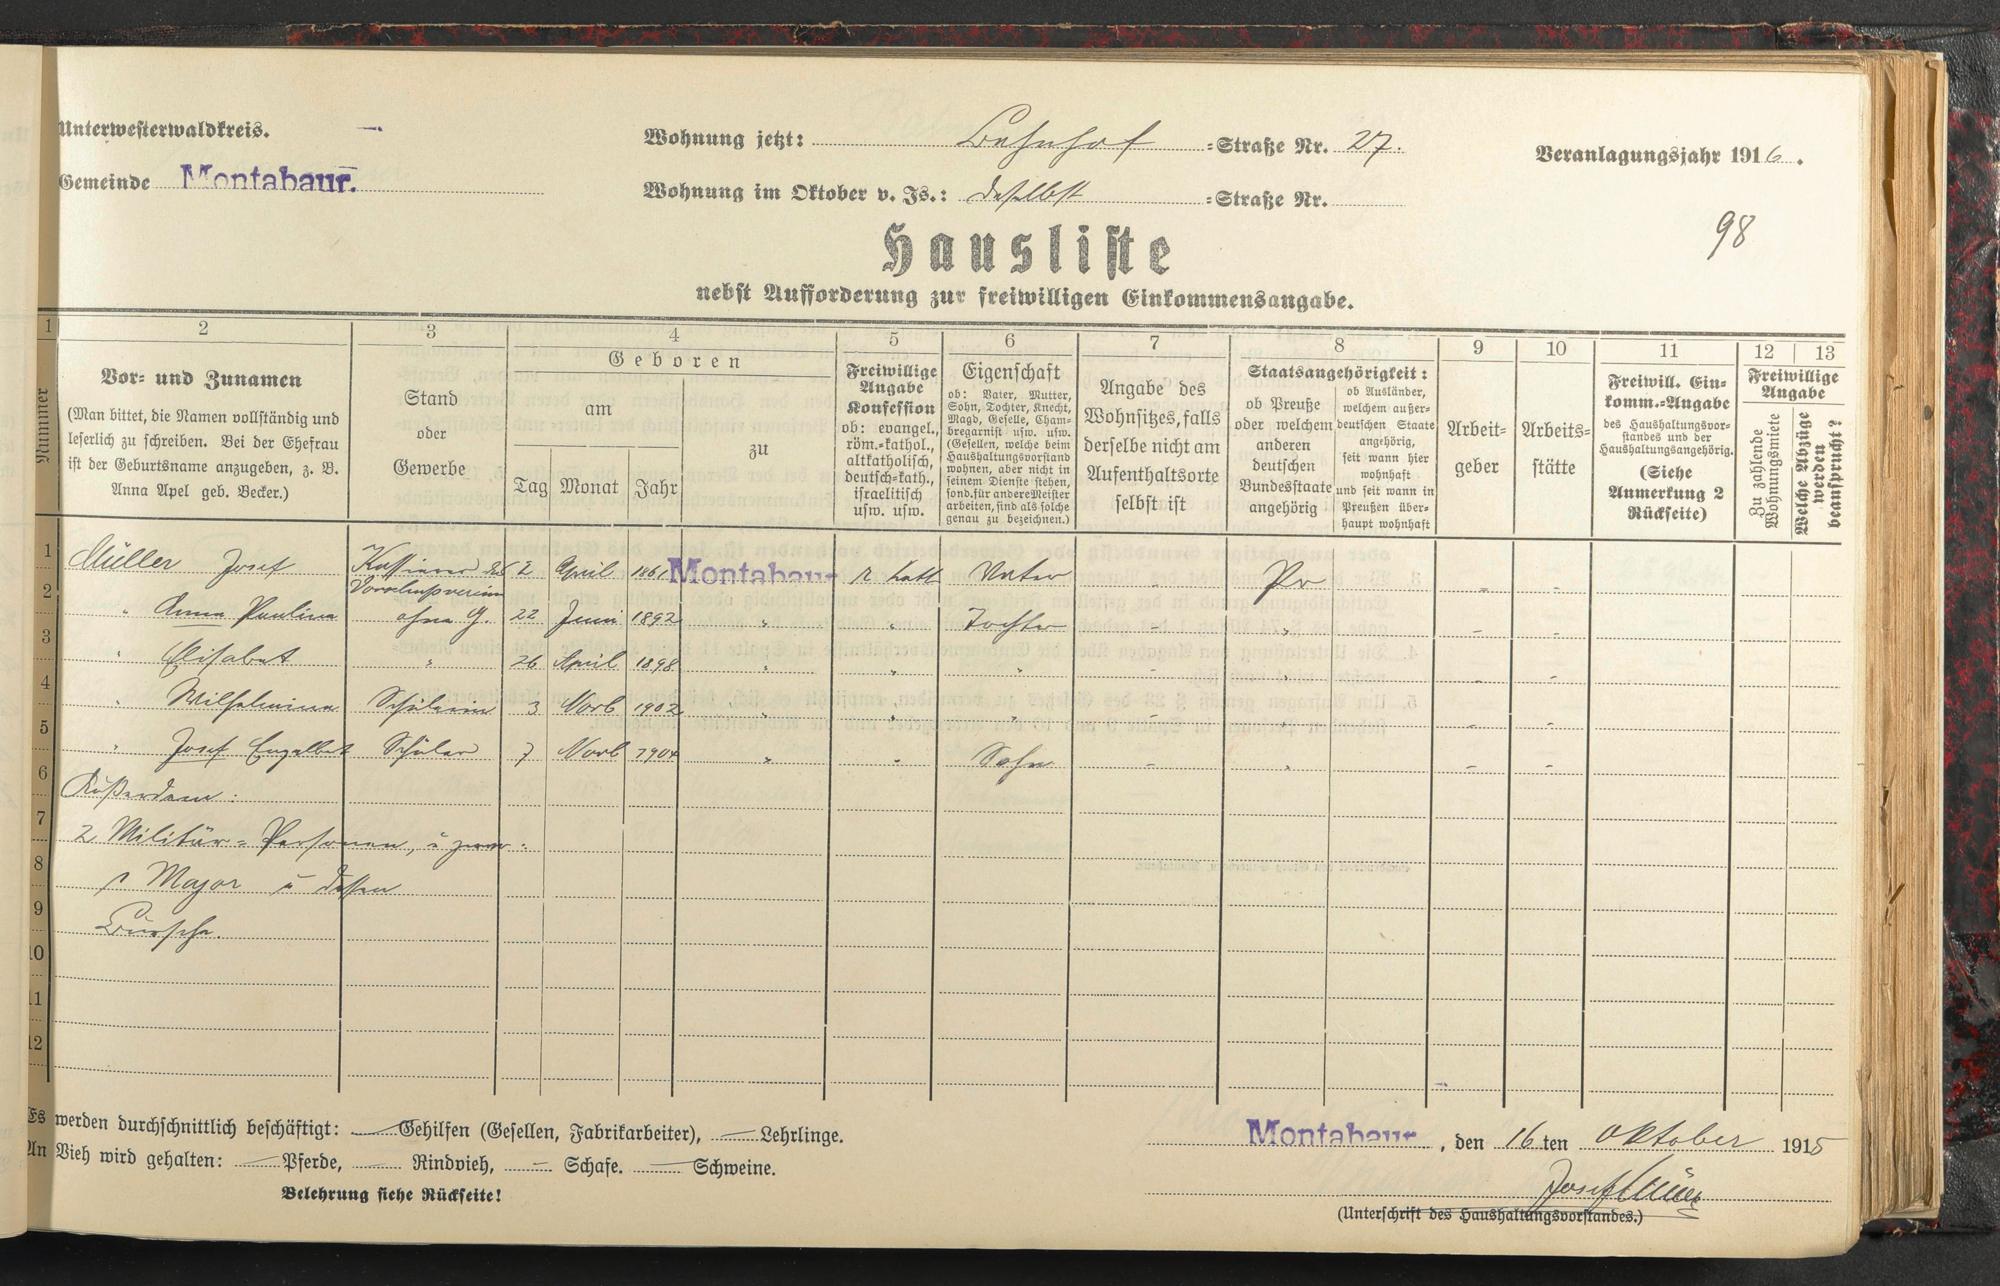 Unterwesterwaldkreis.
Gemeinde Montabaur.
Wohnung jetzt: Bahnhof =Straße Nr. 27.
Wohnung im Oktober v. Js.: daselbst =Straße Nr.
Veranlagungsjahr 1916.
98
Hausliste
nebst Aufforderung zur freiwilligen Einkommensangabe.
1 2 3 4 5 6 7 8 9 10 11 12 13
Nummer
Vor- und Zunamen
(Man bittet, die Namen vollständig und
leserlich zu schreiben. Bei der Ehefrau
ist der Geburtsname anzugeben, z. B.
Anna Apel geb. Becker.)
Stand
oder
Gewerbe
Geboren
am
Tag Monat Jahr
zu
Freiwillige
Angabe
Konfession
ob: evangel.,
röm.-kathol.,
altkatholisch,
deutsch-kath.,
israelitisch
usw. usw.
Eigenschaft
ob: Vater, Mutter,
Sohn, Tochter, Knecht,
Magd, Geselle, Cham-
bregarnist usw. usw.
(Gesellen, welche beim
Haushaltungsvorstand
wohnen, aber nicht in
seinem Dienste stehen,
sond. für andere Meister
arbeiten, sind als solche
genau zu bezeichnen.)
Angabe des
Wohnsitzes, falls
derselbe nicht am
Aufenthaltsorte
selbst ist
Staatsangehörigkeit:
ob Preuße
oder welchem
anderen
deutschen
Bundesstaate
angehörig
ob Ausländer,
welchem außer-
deutschen Staate
angehörig,
seit wann hier
wohnhaft
und seit wann in
Preußen über-
haupt wohnhaft
Arbeit-
geber
Arbeits-
stätte
Freiwill. Ein-
komm.-Angabe
des Haushaltungsvor-
standes und der
Haushaltungsangehörig.
(Siehe
Anmerkung 2
Rückseite)
Freiwillige
Angabe
Zu zahlende
Wohnungsmiete
Welche Abzüge
werden
beansprucht?
1 Müller Josef Kassierer des 2 April 1861 Montabaur r kath Vater Pr - -
Vorschußverein
2 " Anna Paulina ohne G. 22 Juni 1892 " " Tochter " - -
3 " Elisabet " 26 April 1898 " " " - " - -
4 " Wilhelmina Schülerin 3 Novb 1902 " " " - " - -
5 " Josef Engelbert Schüler 7 Novb 1904 " " Sohn - " - -
6 Außerdem:
7 2 Militär-Personen, u zwar:
8 1 Major u dessen
9 Bursche.
10
11
12
Es werden durchschnittlich beschäftigt: — Gehilfen (Gesellen, Fabrikarbeiter), — Lehrlinge.
An Vieh wird gehalten: — Pferde, — Rindvieh, — Schafe. — Schweine.
Belehrung siehe Rückseite!
Montabaur, den 16ten Oktober 1915
Josef Müller
(Unterschrift des Haushaltungsvorstandes.)